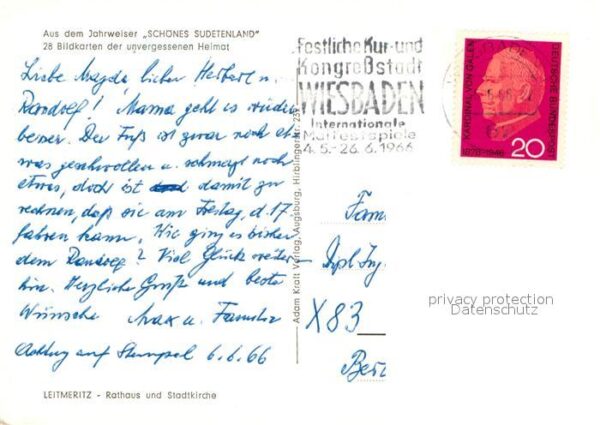 Aus dem Jahrweiser „SCHÖNES SUDETENLAND"
28 Bildkarten der unvergessenen Heimat
Liebe Magda lieber Herbert u.
Randolf! Mama geht es wieder
besser. Der Fuß ist zwar noch et-
was geschwollen u. schmerzt noch
etwas, doch ist damit zu
rechnen, daß sie am Freitag, d. 17
fahren kann. Wie ging es bisher
dem Randolf? Viel Glück weiter-
hin. Herzliche Grüße und beste
Wünsche Max u. Familie
Achtung auf Stempel 6.6.66
LEITMERITZ - Rathaus und Stadtkirche
Adam Kraft Verlag, Augsburg, Hirblingerstr.
Festliche Kur-und
Kongreßstadt
WIESBADEN
Internationale
Maifestspiele
4.5.-26.6.1966
KARDINAL VON GALEN
DEUTSCHE BUNDESPOST
1878-1946
20
Fam
Dipl. Ing.
X83
Ber
privacy protection
Datenschutz